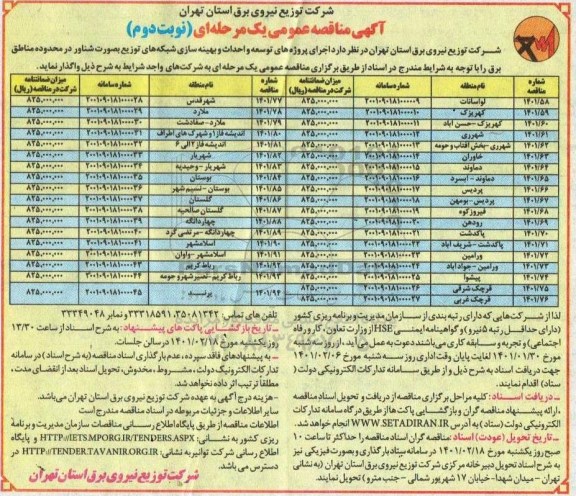 شرکت توزیع نیروی برق استان تهران
آگهی مناقصه عمومی یک مرحله ای (نوبت دوم)
شرکت توزیع نیروی برق استان تهران در نظر دارد اجرای پروژه های توسعه و احداث و بهینه سازی شبکه های توزیع بصورت شناور در محدوده مناطق
برق را با توجه به شرایط مندرج در اسناد از طریق برگزاری مناقصه عمومی یک مرحله ای به شرکت های واجد شرایط به شرح ذیل واگذار نماید.
شماره مناقصه نام منطقه شماره سامانه میزان ضمانتنامه شرکت در مناقصه (ریال) شماره مناقصه نام منطقه شماره سامانه میزان ضمانتنامه شرکت در مناقصه (ریال)
۱۴۰۱/۵۸ لواسانات ۲۰۰۱۰۹۰۱۸۱۰۰۰۰۰۹ ۸۲۵,۰۰۰,۰۰۰ ۱۴۰۱/۷۷ شهرقدس ۲۰۰۱۰۹۰۱۸۱۰۰۰۰۲۸ ۸۲۵,۰۰۰,۰۰۰
۱۴۰۱/۵۹ کهریزک ۲۰۰۱۰۹۰۱۸۱۰۰۰۰۱۰ ۸۲۵,۰۰۰,۰۰۰ ۱۴۰۱/۷۸ ملارد ۲۰۰۱۰۹۰۱۸۱۰۰۰۰۲۹ ۸۲۵,۰۰۰,۰۰۰
۱۴۰۱/۶۰ کهریزک -حسن آباد ۲۰۰۱۰۹۰۱۸۱۰۰۰۰۱۱ ۸۲۵,۰۰۰,۰۰۰ ۱۴۰۱/۷۹ ملارد-صفادشت ۲۰۰۱۰۹۰۱۸۱۰۰۰۰۳۰ ۸۲۵,۰۰۰,۰۰۰
۱۴۰۱/۶۱ شهرری ۲۰۰۱۰۹۰۱۸۱۰۰۰۰۱۲ ۸۲۵,۰۰۰,۰۰۰ ۱۴۰۱/۸۰ اندیشه فاز۱ و شهرک های اطراف ۲۰۰۱۰۹۰۱۸۱۰۰۰۰۳۱ ۸۲۵,۰۰۰,۰۰۰
۱۴۰۱/۶۲ شهرری -بخش آفتاب و حومه ۲۰۰۱۰۹۰۱۸۱۰۰۰۰۱۳ ۸۲۵,۰۰۰,۰۰۰ ۱۴۰۱/۸۱ اندیشه فاز ۲ الی ۶ ۲۰۰۱۰۹۰۱۸۱۰۰۰۰۳۲ ۸۲۵,۰۰۰,۰۰۰
۱۴۰۱/۶۳ خاوران ۲۰۰۱۰۹۰۱۸۱۰۰۰۰۱۴ ۸۲۵,۰۰۰,۰۰۰ ۱۴۰۱/۸۲ شهریار ۲۰۰۱۰۹۰۱۸۱۰۰۰۰۳۳ ۸۲۵,۰۰۰,۰۰۰
۱۴۰۱/۶۴ دماوند ۲۰۰۱۰۹۰۱۸۱۰۰۰۰۱۵ ۸۲۵,۰۰۰,۰۰۰ ۱۴۰۱/۸۳ شهریار-وحیدیه ۲۰۰۱۰۹۰۱۸۱۰۰۰۰۳۴ ۸۲۵,۰۰۰,۰۰۰
۱۴۰۱/۶۵ دماوند - آبسرد ۲۰۰۱۰۹۰۱۸۱۰۰۰۰۱۶ ۸۲۵,۰۰۰,۰۰۰ ۱۴۰۱/۸۴ بوستان ۲۰۰۱۰۹۰۱۸۱۰۰۰۰۳۵ ۸۲۵,۰۰۰,۰۰۰
۱۴۰۱/۶۶ پردیس ۲۰۰۱۰۹۰۱۸۱۰۰۰۰۱۷ ۸۲۵,۰۰۰,۰۰۰ ۱۴۰۱/۸۵ بوستان -نسیم شهر ۲۰۰۱۰۹۰۱۸۱۰۰۰۰۳۶ ۸۲۵,۰۰۰,۰۰۰
۱۴۰۱/۶۷ پردیس-بومهن ۲۰۰۱۰۹۰۱۸۱۰۰۰۰۱۸ ۸۲۵,۰۰۰,۰۰۰ ۱۴۰۱/۸۶ گلستان ۲۰۰۱۰۹۰۱۸۱۰۰۰۰۳۷ ۸۲۵,۰۰۰,۰۰۰
۱۴۰۱/۶۸ فیروزکوه ۲۰۰۱۰۹۰۱۸۱۰۰۰۰۱۹ ۸۲۵,۰۰۰,۰۰۰ ۱۴۰۱/۸۷ گلستان صالحیه ۲۰۰۱۰۹۰۱۸۱۰۰۰۰۳۸ ۸۲۵,۰۰۰,۰۰۰
۱۴۰۱/۶۹ رودهن ۲۰۰۱۰۹۰۱۸۱۰۰۰۰۲۰ ۸۲۵,۰۰۰,۰۰۰ ۱۴۰۱/۸۸ چهاردانگه ۲۰۰۱۰۹۰۱۸۱۰۰۰۰۳۹ ۸۲۵,۰۰۰,۰۰۰
۱۴۰۱/۷۰ پاکدشت ۲۰۰۱۰۹۰۱۸۱۰۰۰۰۲۱ ۸۲۵,۰۰۰,۰۰۰ ۱۴۰۱/۸۹ چهاردانگه -مرتضی گرد ۲۰۰۱۰۹۰۱۸۱۰۰۰۰۴۰ ۸۲۵,۰۰۰,۰۰۰
۱۴۰۱/۷۱ پاکدشت -شریف آباد ۲۰۰۱۰۹۰۱۸۱۰۰۰۰۲۲ ۸۲۵,۰۰۰,۰۰۰ ۱۴۰۱/۹۰ اسلامشهر ۲۰۰۱۰۹۰۱۸۱۰۰۰۰۴۱ ۸۲۵,۰۰۰,۰۰۰
۱۴۰۱/۷۲ ورامین ۲۰۰۱۰۹۰۱۸۱۰۰۰۰۲۳ ۸۲۵,۰۰۰,۰۰۰ ۱۴۰۱/۹۱ اسلامشهر -واوان ۲۰۰۱۰۹۰۱۸۱۰۰۰۰۴۲ ۸۲۵,۰۰۰,۰۰۰
۱۴۰۱/۷۳ ورامین - جوادآباد ۲۰۰۱۰۹۰۱۸۱۰۰۰۰۲۴ ۸۲۵,۰۰۰,۰۰۰ ۱۴۰۱/۹۲ رباط کریم ۲۰۰۱۰۹۰۱۸۱۰۰۰۰۴۳ ۸۲۵,۰۰۰,۰۰۰
۱۴۰۱/۷۴ پیشوا ۲۰۰۱۰۹۰۱۸۱۰۰۰۰۲۵ ۸۲۵,۰۰۰,۰۰۰ ۱۴۰۱/۹۳ رباط کریم -نصیرشهر و حومه ۲۰۰۱۰۹۰۱۸۱۰۰۰۰۴۴ ۸۲۵,۰۰۰,۰۰۰
۱۴۰۱/۷۵ قرچک شرقی ۲۰۰۱۰۹۰۱۸۱۰۰۰۰۲۶ ۸۲۵,۰۰۰,۰۰۰ ۱۴۰۱/۹۴ پرنسد ۲۰۰۱۰۹۰۱۸۱۰۰۰۰۴۵ ۸۲۵,۰۰۰,۰۰۰
۱۴۰۱/۷۶ قرچک غربی ۲۰۰۱۰۹۰۱۸۱۰۰۰۰۲۷ ۸۲۵,۰۰۰,۰۰۰
لذا از شرکت هایی که دارای رتبه بندی از سازمان مدیریت و برنامه ریزی کشور
(دارای حداقل رتبه ۵ نیرو) و گواهینامه ایمنی HSE از وزارت تعاون، کار و رفاه
اجتماعی) و تجربه و سابقه کاری می باشند دعوت به عمل می آید، از روز سه شنبه
مورخ ۱۴۰۱/۰۱/۳۰ لغایت پایان وقت اداری روز سه شنبه مورخ ۱۴۰۱/۰۲/۰۶
جهت دریافت اسناد به شرح ذیل و از طریق سامانه تدارکات الکترونیکی دولت (
ستاد) اقدام نمایند.
ـ دریافت اسناد: کلیه مراحل برگزاری مناقصه از دریافت و تحویل اسناد مناقصه
، ارائه پیشنهاد مناقصه گران و بازگشایی پاکت ها از طریق درگاه سامانه تدارکات
الکترونیکی دولت (ستاد) به آدرس WWW.SETADIRAN.IR انجام خواهد شد.
ـ تاریخ تحویل (عودت) اسناد: مناقصه گران اسناد مناقصه را حداکثر تا ساعت ۱۰
صبح روز یکشنبه مورخ ۱۴۰۱/۰۲/۱۸ در سامانه ستاد بارگذاری و بصورت فیزیکی نیز
به شرح اسناد تحویل دبیرخانه مرکزی شرکت توزیع نیروی برق استان تهران (به نشانی
تهران - میدان شهدا- خیابان ۱۷ شهریور شمالی - جنب مترو) تحویل نمایند.
تلفن های تماس: ۳۵۰۸۱۲۴۲، ۳۳۳۱۸۵۹۱ و نمابر ۳۳۳۴۹۰۴۸
ـ تاریخ بازگشایی پاکت های پیشنهاد: به شرح اسناد از ساعت ۱۳/۳۰
روز یکشنبه مورخ ۱۴۰۱/۰۲/۱۸ در سالن جلسات.
ـ به پیشنهادهای فاقد سپرده، عدم بارگذاری اسناد مناقصه (به شرح اسناد) در سامانه
تدارکات الکترونیک دولت، مشروط، مخدوش، تحویل اسناد بعد از انقضای مدت،
مطلقاً ترتیب اثر داده نخواهد شد.
- هزینه درج آگهی به عهده شرکت توزیع نیروی برق استان تهران می باشد.
سایر اطلاعات و جزئیات مربوطه در اسناد مناقصه مندرج است
اطلاعات مناقصه از طریق پایگاه اطلاع رسانی مناقصات سازمان مدیریت و برنامه
ریزی کشور به نشانی: HTTP://IETS.MPORG.IR/TENDERS.ASPX و پایگاه
اطلاع رسانی شرکت توانیر به نشانی: HTTP://TENDER.TAVANIR.ORG.IR در
دسترس می باشد.
شرکت توزیع نیروی برق استان تهران